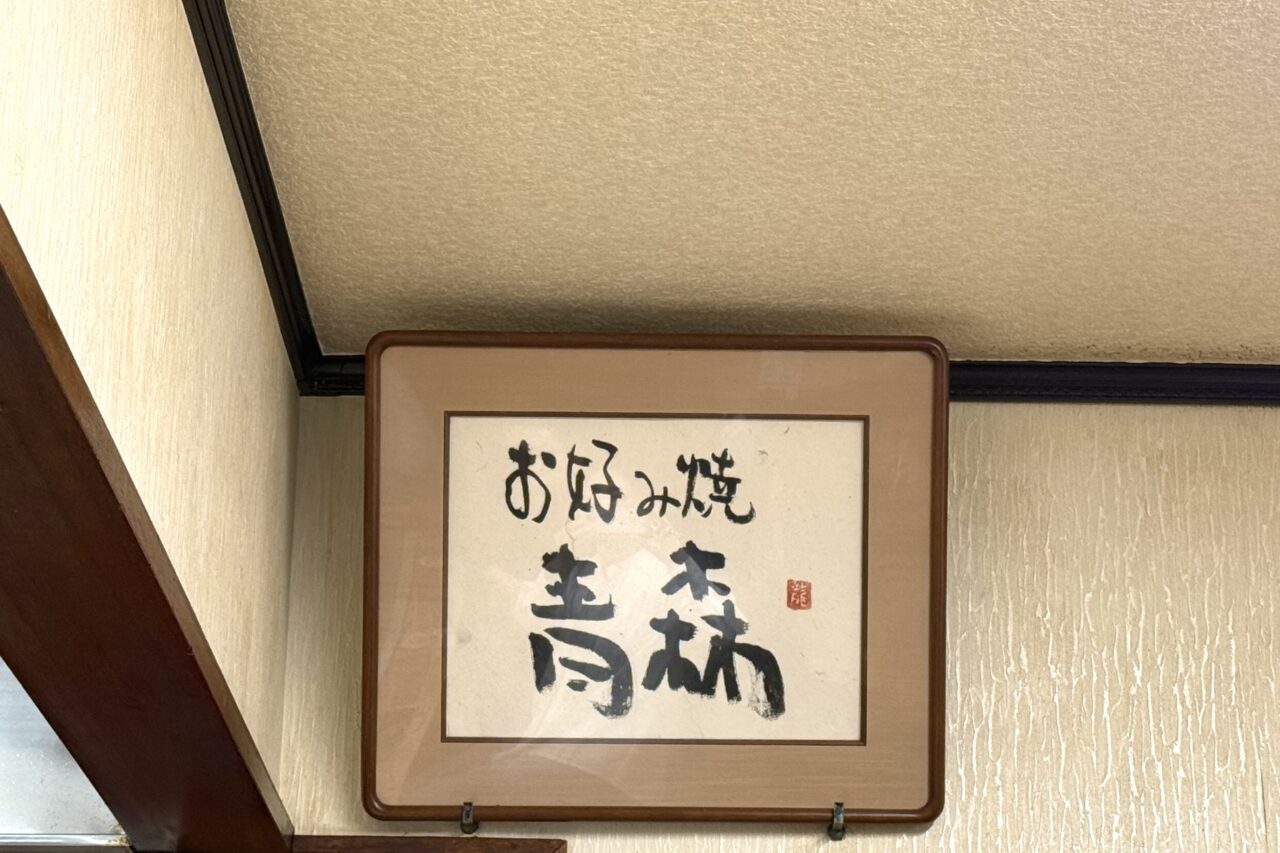 お好み焼
青森